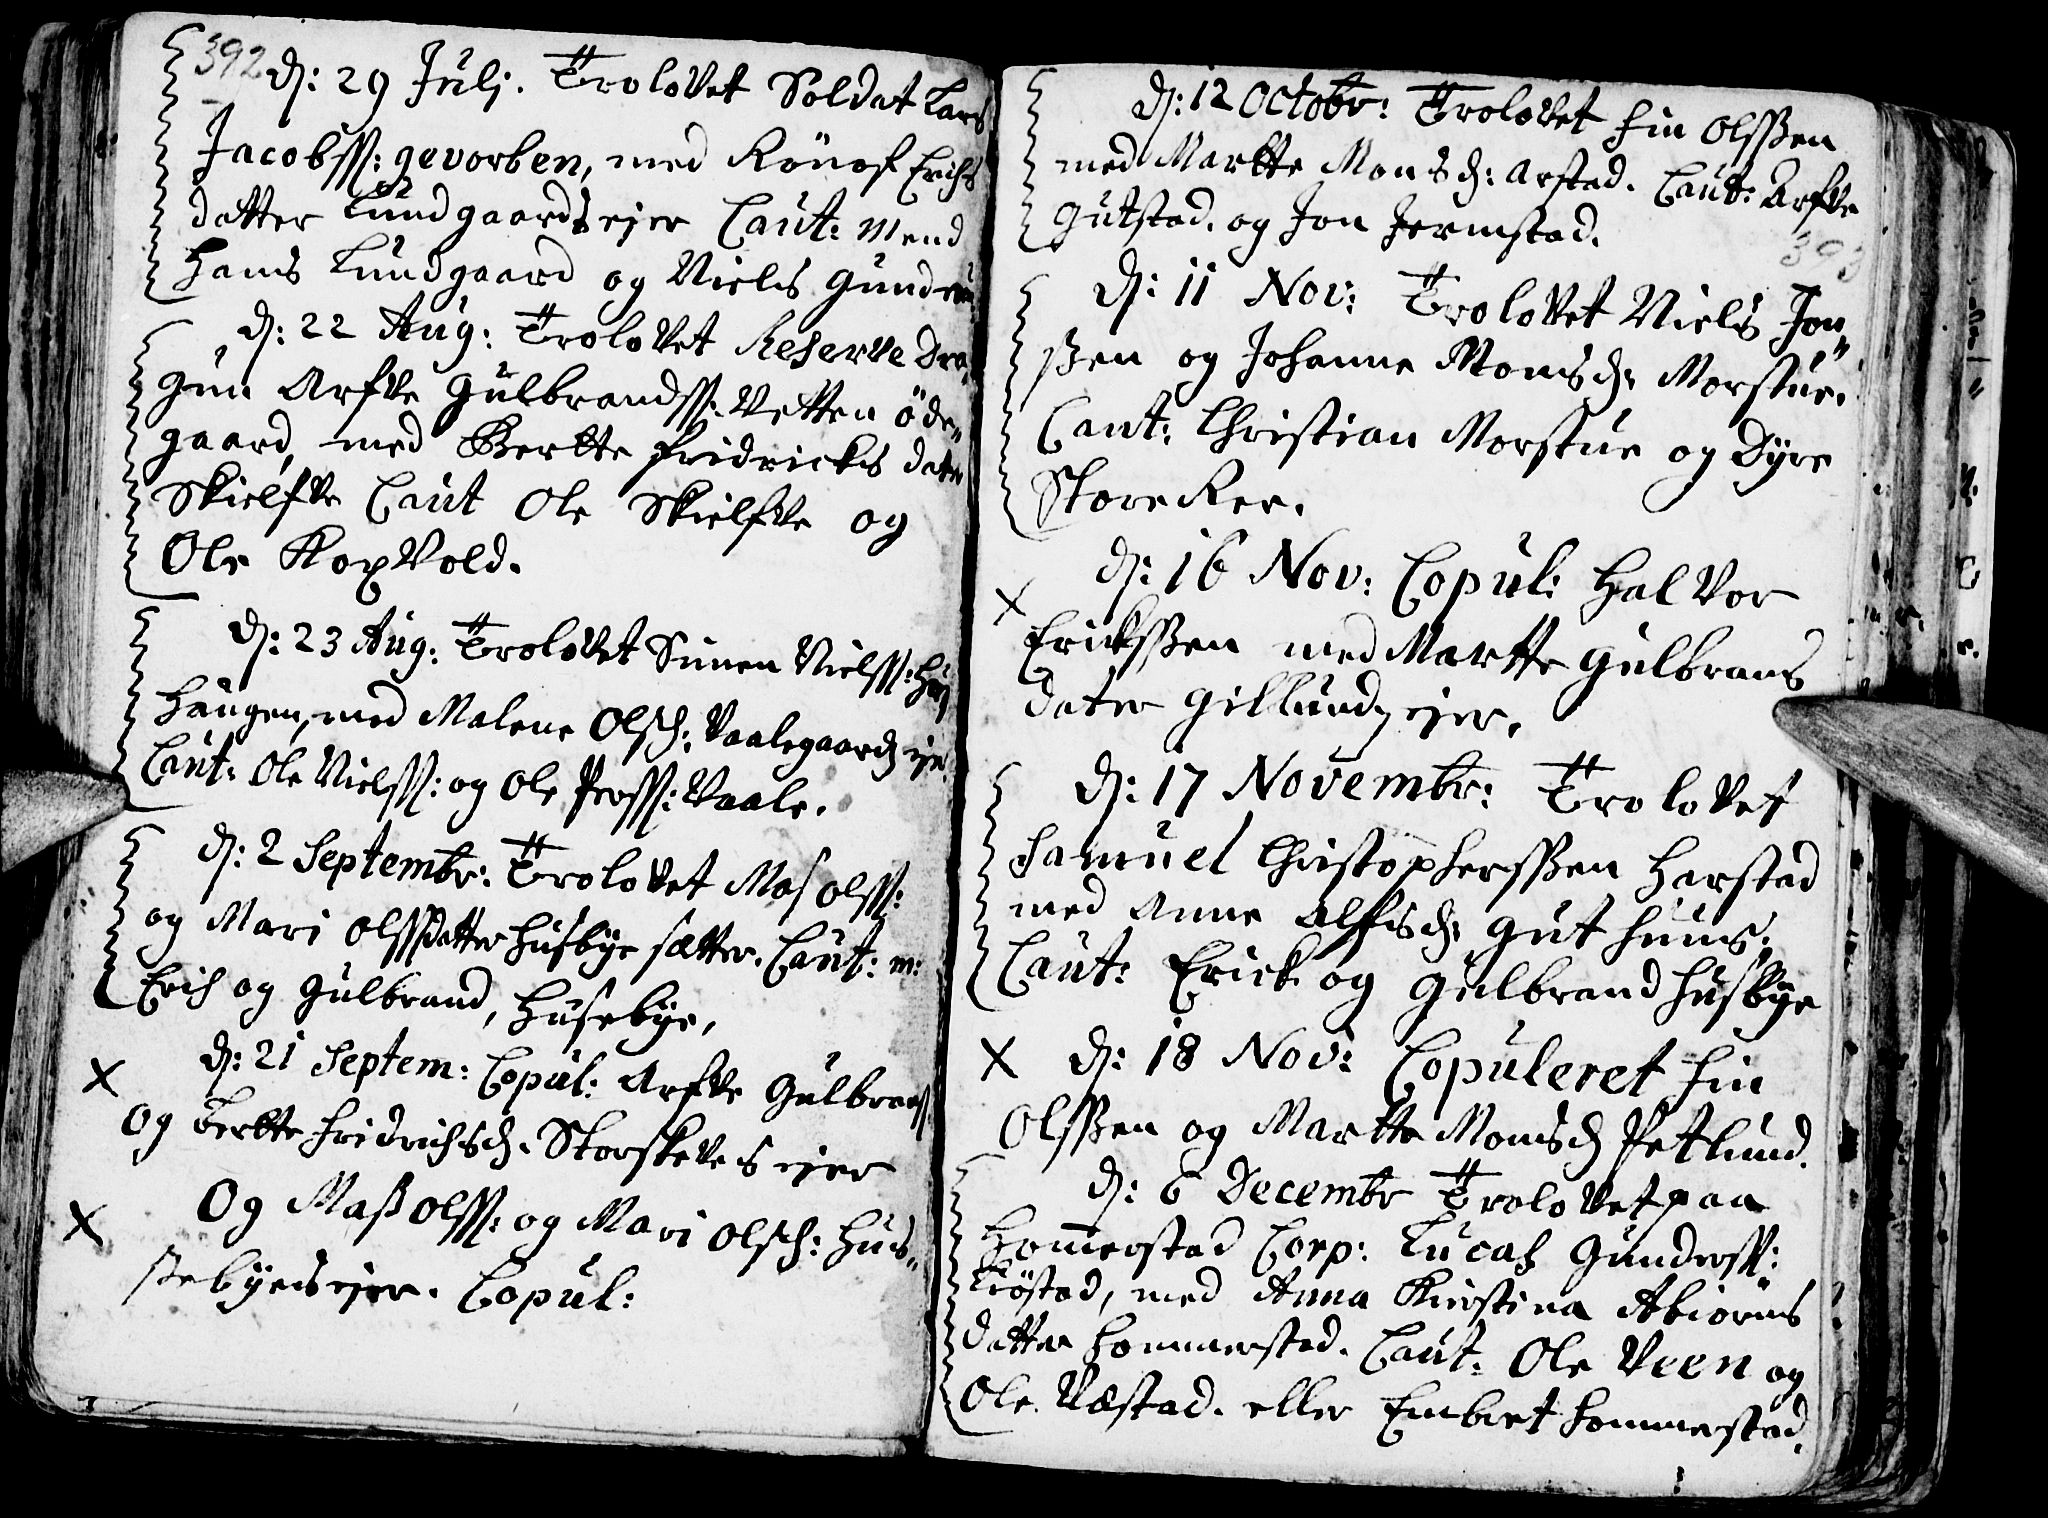 392
d: 29 Julj. Trolovet Soldat Lars
Jacobss: gevorben, med Rönof Erichs
datter Lundgaards ejer Caut: mend
Hans Lundgaard og Niels
d: 22 Aug: Trolovet Reserve Dra„
gun Arfve Gulbrandss: Vetten öde„
gaard, med Bertte Fridrichs dater
Skielfve Caut Ole Skielfve og
Ole Kopvold.
d: 23 Aug: Trolovet Simen Nielss:
Haugen, med Malene Olsd: Vaalegaards ejer.
Caut: Ole Nielss: og Ole Perss: Vaale.
d: 2 Septembr: Trolovet Mas Olss:
og Mari Olssdatter Husbye sætter. Caut: m:
Erich og Gulbrand, Husebye,
d: 21 Septem: Copul: Arfve Gulbrans
og Bertte Fridrichsd: ejer
Og Mass Olss: og Mari Olsd: Hus„
sebyes ejer. Copul:
d: 12 Octobr: Trolovet Fin Olssen
med Martte Monsd: Arstad. Caut: Arfve
Gutstad. og Jon Jermstad.
393
d: 11 Nov: Trolovet Niels Jon„
ssen og Johanne Monsd: Morstue.
Caut: Christian Morstue og Dyre
Store Ree.
d: 16 Nov: Copul: Halvor
Erickssen med Martte Gulbrans
dater Gillunds ejer.
d: 17 Novembr: Trolovet
Samuel Christopherssen Harstad
med Anne Alfsd: Gut huus.
Caut: Erick og Gulbrand Husbye
d: 18 Nov: Copuleret Fin
Olssen og Martte Monsd Petlund.
d: 6 Decembr Trolovet paa
Homerstad Corp: Lucas Gunderss:
Kiöstad, med Anna Kirstina Abiörns
datter Hommerstad. Caut: Ole Veen og
Ole Væstad. eller Embret Hommerstad.